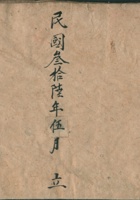 民國叁拾陸年伍月 立